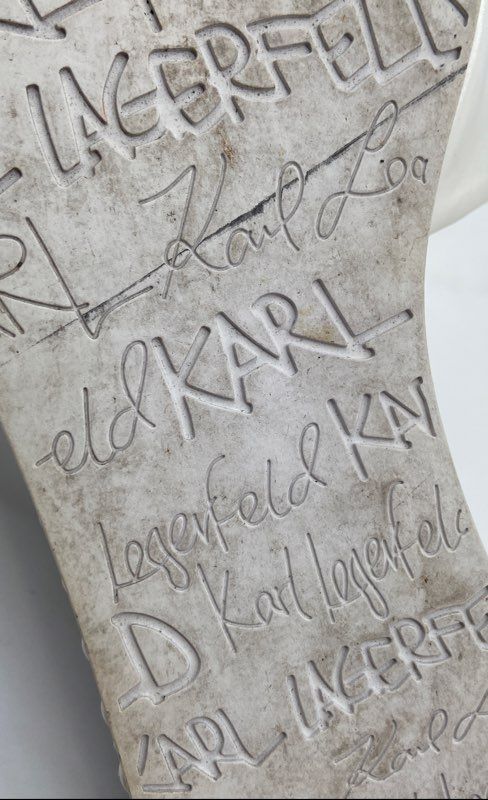 LAGERFELD
ARL Karl
eld KARL
Legerfeld KA
D Karl Legerfeld
KARL LAGERFE
Karl L